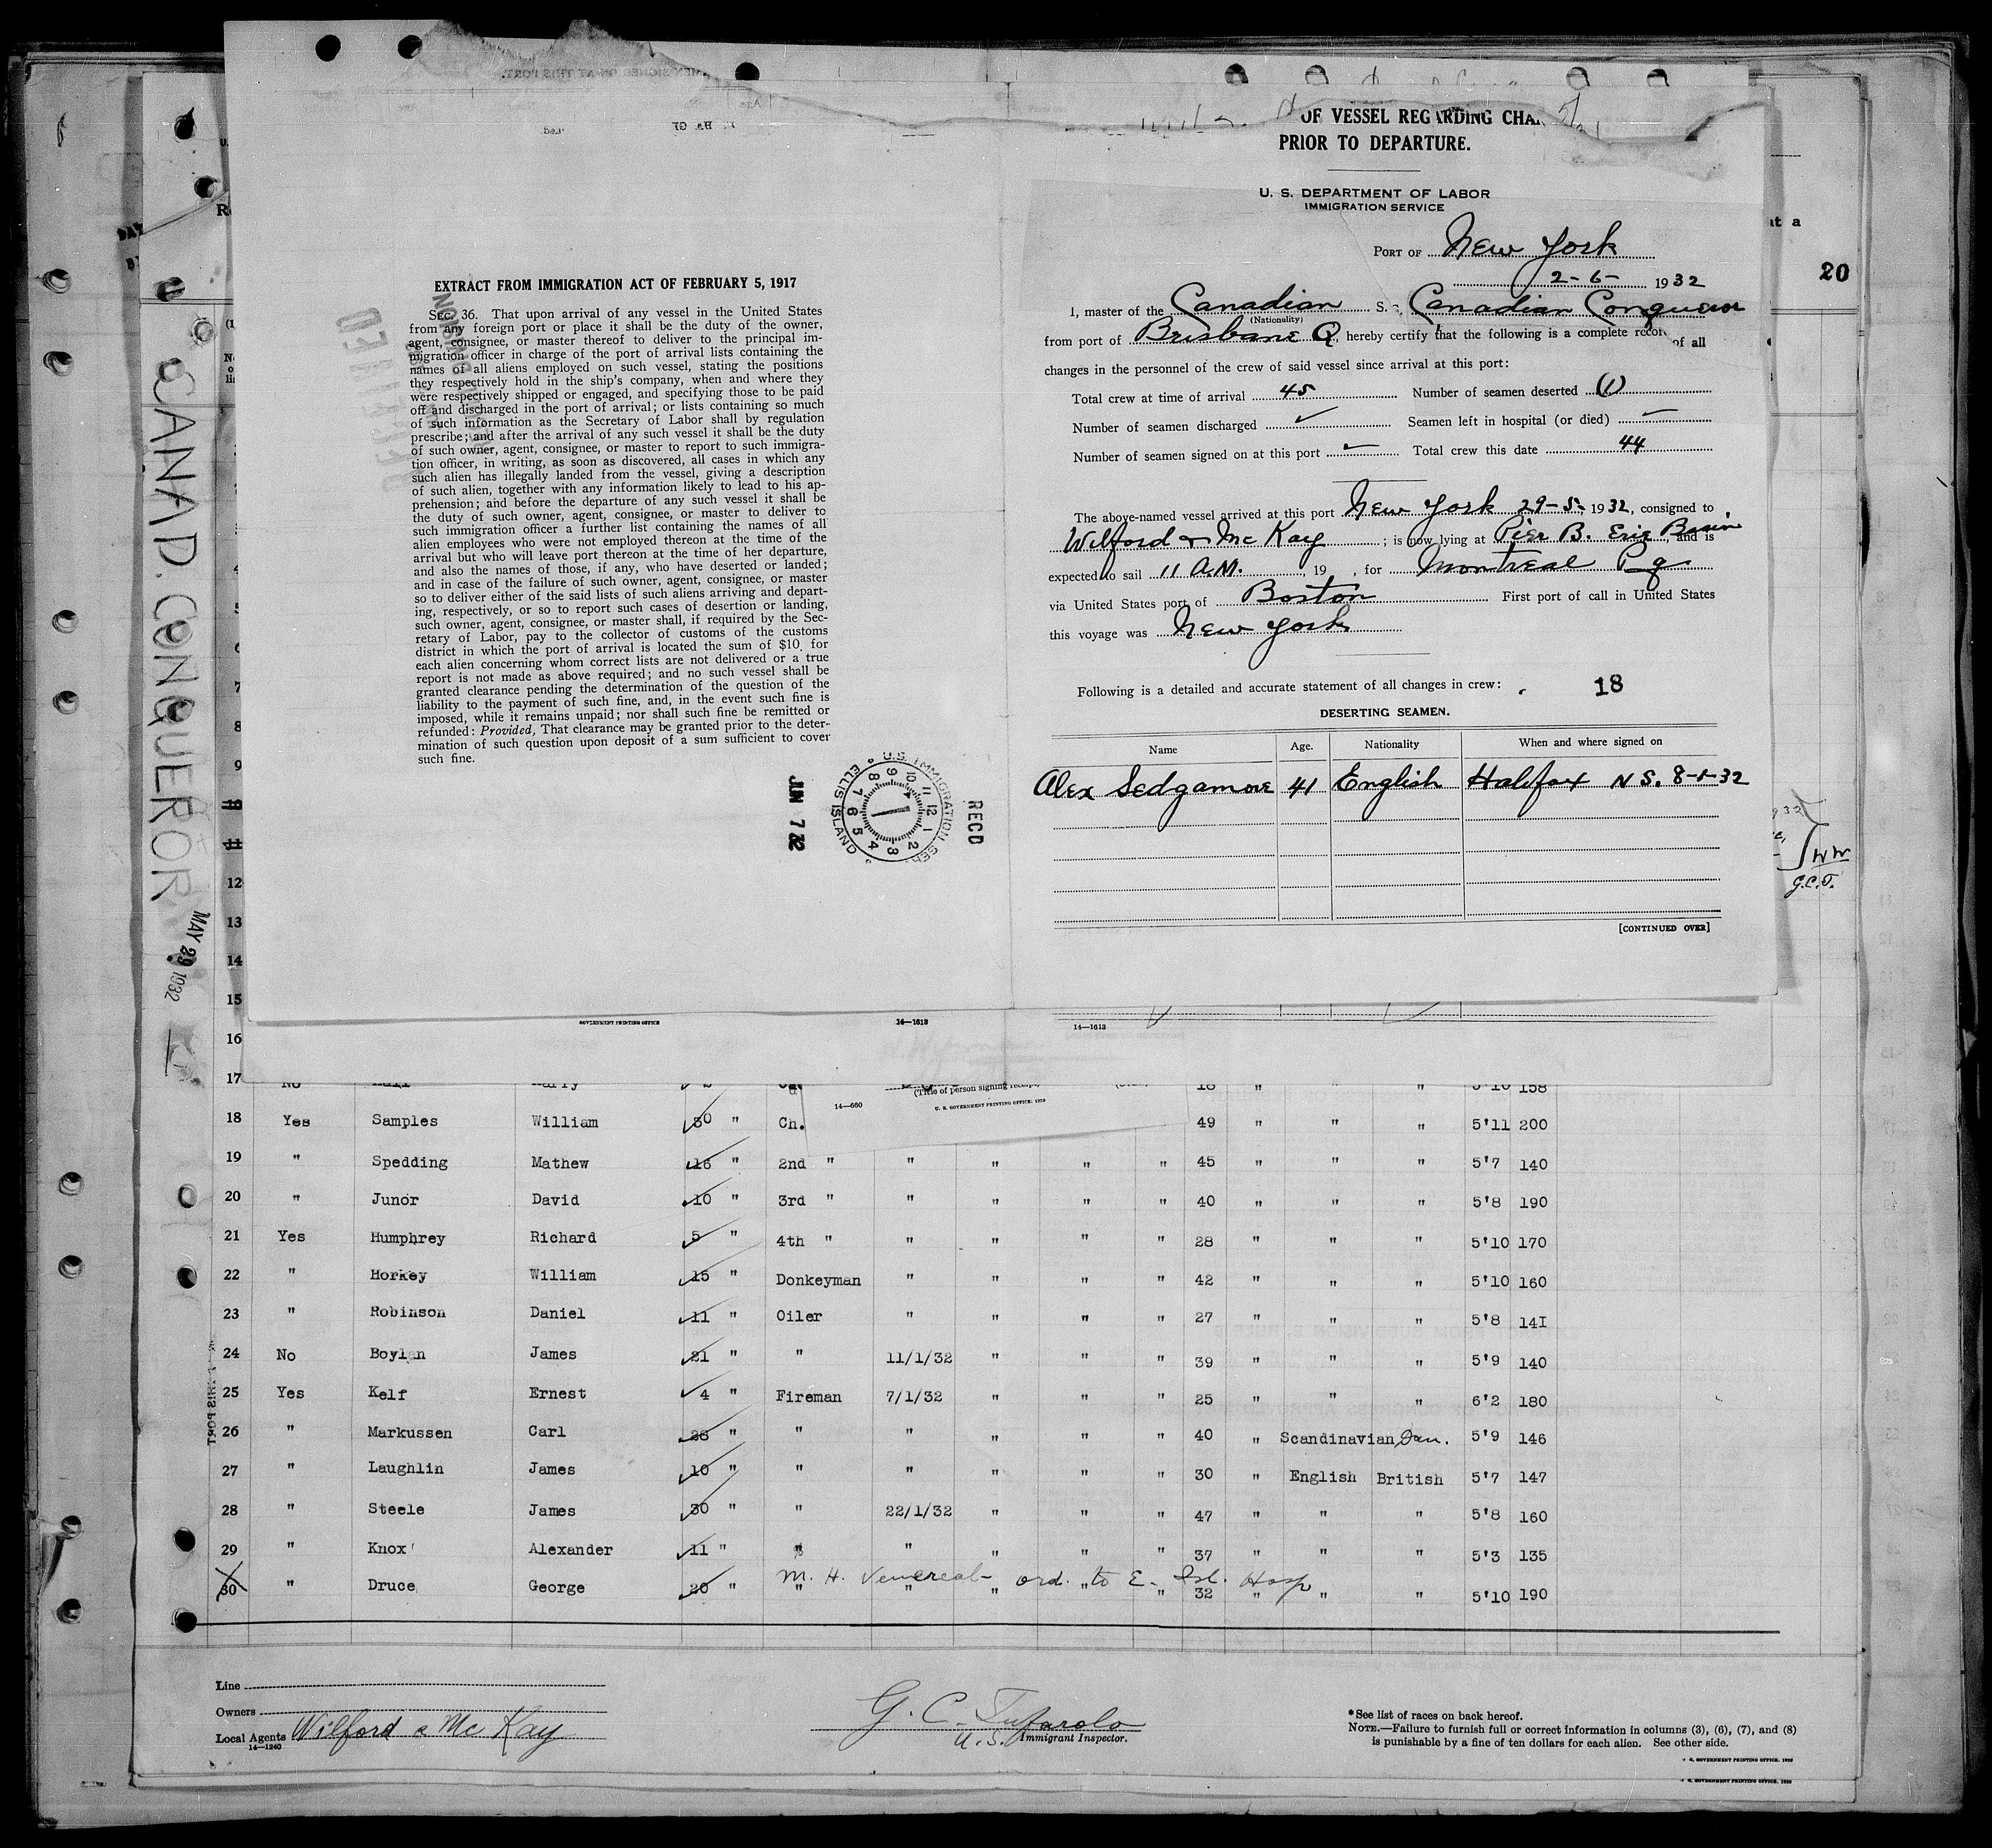 EXTRACT FROM IMMIGRATION ACT OF FEBRUARY 5, 1917
SEC. 36. That upon arrival of any vessel in the United States
from any foreign port or place it shall be the duty of the owner,
agent, consignee, or master thereof to deliver to the principal im-
migration officer in charge of the port of arrival lists containing the
names of all aliens employed on such vessel, stating the positions
they respectively hold in the ship's company, when and where they
were respectively shipped or engaged, and specifying those to be paid
off and discharged in the port of arrival; or lists containing so much
of such information as the Secretary of Labor shall by regulation
prescribe; and after the arrival of any such vessel it shall be the duty
of such owner, agent, consignee, or master to report to such immigra-
tion officer, in writing, as soon as discovered, all cases in which any
such alien has illegally landed from the vessel, giving a description
of such alien, together with any information likely to lead to his ap-
prehension; and before the departure of any such vessel it shall be
the duty of such owner, agent, consignee, or master to deliver to
such immigration officer a further list containing the names of all
alien employees who were not employed thereon at the time of the
arrival but who will leave port thereon at the time of her departure,
and also the names of those, if any, who have deserted or landed;
and in case of the failure of such owner, agent, consignee, or master
so to deliver either of the said lists of such aliens arriving and depart-
ing, respectively, or so to report such cases of desertion or landing,
such owner, agent, consignee, or master shall, if required by the Sec-
retary of Labor, pay to the collector of customs of the customs
district in which the port of arrival is located the sum of $10 for
each alien concerning whom correct lists are not delivered or a true
report is not made as above required; and no such vessel shall be
granted clearance pending the determination of the question of the
liability to the payment of such fine, and, in the event such fine is
imposed, while it remains unpaid; nor shall such fine be remitted or
refunded: Provided, That clearance may be granted prior to the deter-
mination of such question upon deposit of a sum sufficient to cover
such fine.
JUN 7 32
U.S. IMMIGRATION SER
ELLIS ISLAND
RECD
OF VESSEL REGARDING CHA
PRIOR TO DEPARTURE.
U. S. DEPARTMENT OF LABOR
IMMIGRATION SERVICE
PORT OF New York
2-6- 1932
I, master of the Canadian S. S. Canadian Conqueror
(Nationality)
from port of Brisbane Q, hereby certify that the following is a complete record of all
changes in the personnel of the crew of said vessel since arrival at this port:
Total crew at time of arrival 45 Number of seamen deserted (1)
Number of seamen discharged ✓ Seamen left in hospital (or died) –
Number of seamen signed on at this port – Total crew this date 44
The above-named vessel arrived at this port New York 29-5- 1932, consigned to
Wilford & Mc Kay ; is now lying at Pier B. Erie Basin, and is
expected to sail 11 A.M. , 19 , for Montreal Pq
via United States port of Boston First port of call in United States
this voyage was New York
Following is a detailed and accurate statement of all changes in crew: 18
DESERTING SEAMEN.
Name Age. Nationality When and where signed on
Alex Sedgamore 41 English Halifax N S. 8-1-32
[CONTINUED OVER]
20
W W
G.C.T.
CANAD. CONQUEROR
MAY 29 1932
7
8
9
10
11
12
13
14
15
16
GOVERNMENT PRINTING OFFICE 14—1613 14—1613
17 No Harry 18 " " 5'10 158
(Title of person signing receipt)
14—660 U. S. GOVERNMENT PRINTING OFFICE: 1929
18 Yes Samples William 30 " Ch. 49 " " " 5'11 200
19 " Spedding Mathew 16 " 2nd " " " " " 45 " " " 5'7 140
20 " Junor David 10 " 3rd " " " " " 40 " " " 5'8 190
21 Yes Humphrey Richard 5 " 4th " " " " " 28 " " " 5'10 170
22 " Horkey William 15 " Donkeyman " " " " 42 " " " 5'10 160
23 " Robinson Daniel 11 " Oiler " " " " 27 " " " 5'8 14I
24 No Boylan James 21 " " 11/1/32 " " " 39 " " " 5'9 140
25 Yes Kelf Ernest 4 " Fireman 7/1/32 " " " 25 " " " 6'2 180
26 " Markussen Carl 28 " " " " " " 40 " Scandinavian Dan. 5'9 146
27 " Laughlin James 10 " " " " " " 30 " English British 5'7 147
28 " Steele James 30 " " 22/1/32 " " " 47 " " " 5'8 160
29 " Knox Alexander 11 " " " " " " 37 " " " 5'3 135
M. H. Venereal- ord. to E. Isl. Hosp
30 " Druce George 20 " " " " " " 32 " " " 5'10 190
Line
Owners
Local Agents Wilford & Mc Kay
14—1240
U.S. Immigrant Inspector.
*See list of races on back hereof.
NOTE.—Failure to furnish full or correct information in columns (3), (6), (7), and (8)
is punishable by a fine of ten dollars for each alien. See other side.
U. S. GOVERNMENT PRINTING OFFICE: 1929